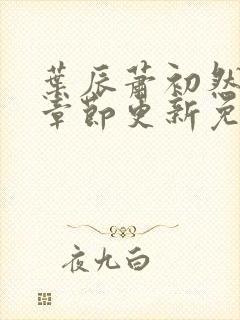 葉辰蕭初然
章節更新免
夜九白